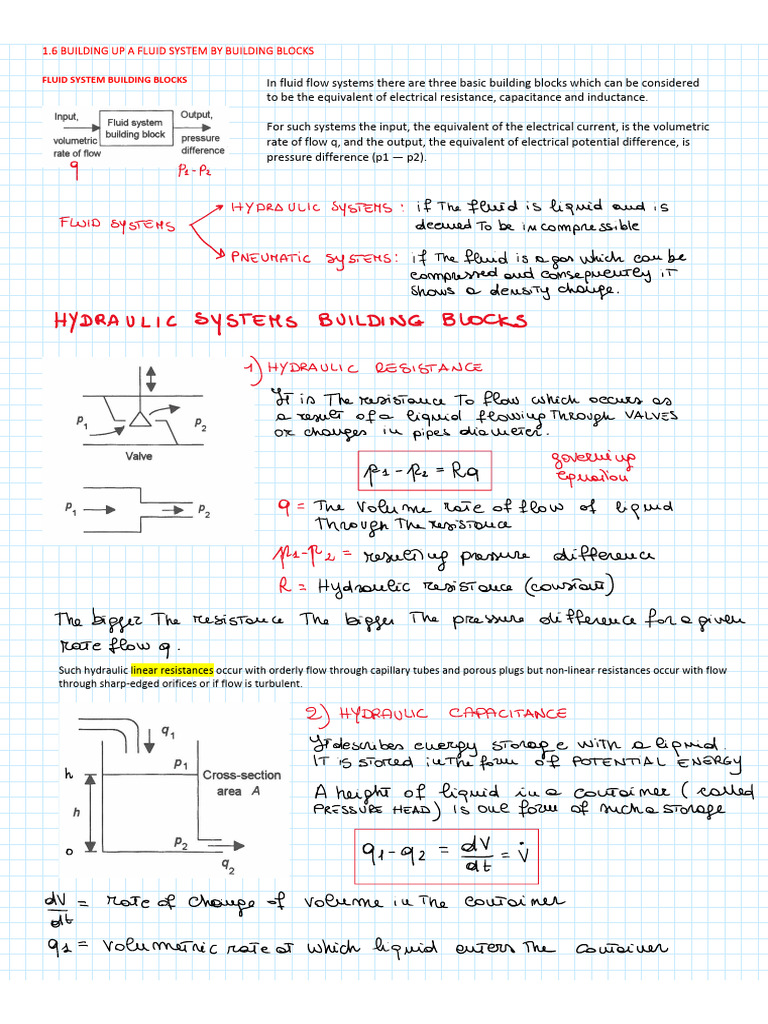 1.6 BUILDING UP A FLUID SYSTEM BY BUILDING BLOCKS
FLUID SYSTEM BUILDING BLOCKS
Input,
volumetric
rate of flow
q
Fluid system
building block
Output,
pressure
difference
p1-p2
In fluid flow systems there are three basic building blocks which can be considered
to be the equivalent of electrical resistance, capacitance and inductance.
For such systems the input, the equivalent of the electrical current, is the volumetric
rate of flow q, and the output, the equivalent of electrical potential difference, is
pressure difference (p1 — p2).
FLUID SYSTEMS
HYDRAULIC SYSTEMS: if The fluid is liquid and is
deemed To be incompressible
PNEUMATIC SYSTEMS: if The fluid is a gas which can be
compressed and consequently it
shows a density change.
HYDRAULIC SYSTEMS BUILDING BLOCKS
p1
p2
Valve
p1
p2
1) HYDRAULIC RESISTANCE
It is The resistance To flow which occurs as
a result of a liquid flowing THROUGH VALVES
or changes in pipes diameter.
p1-p2 = Rq
governing
Equation
q = The volume rate of flow of liquid
Through The resistance
p1-p2 = resulting pressure difference
R = Hydraulic resistance (constant)
The bigger The resistance The bigger The pressure difference for a given
rate flow q.
Such hydraulic linear resistances occur with orderly flow through capillary tubes and porous plugs but non-linear resistances occur with flow
through sharp-edged orifices or if flow is turbulent.
q1
p1
Cross-section
area A
h
h
o
p2
q2
2) HYDRAULIC CAPACITANCE
It describes energy storage with a liquid.
IT is stored in the form of POTENTIAL ENERGY
A height of liquid in a container (called
PRESSURE HEAD) is one form of such a storage
q1-q2 = dV/dt = V̇
dV/dt = rate of change of volume in The container
q1 = volumetric rate at which liquid enters The container